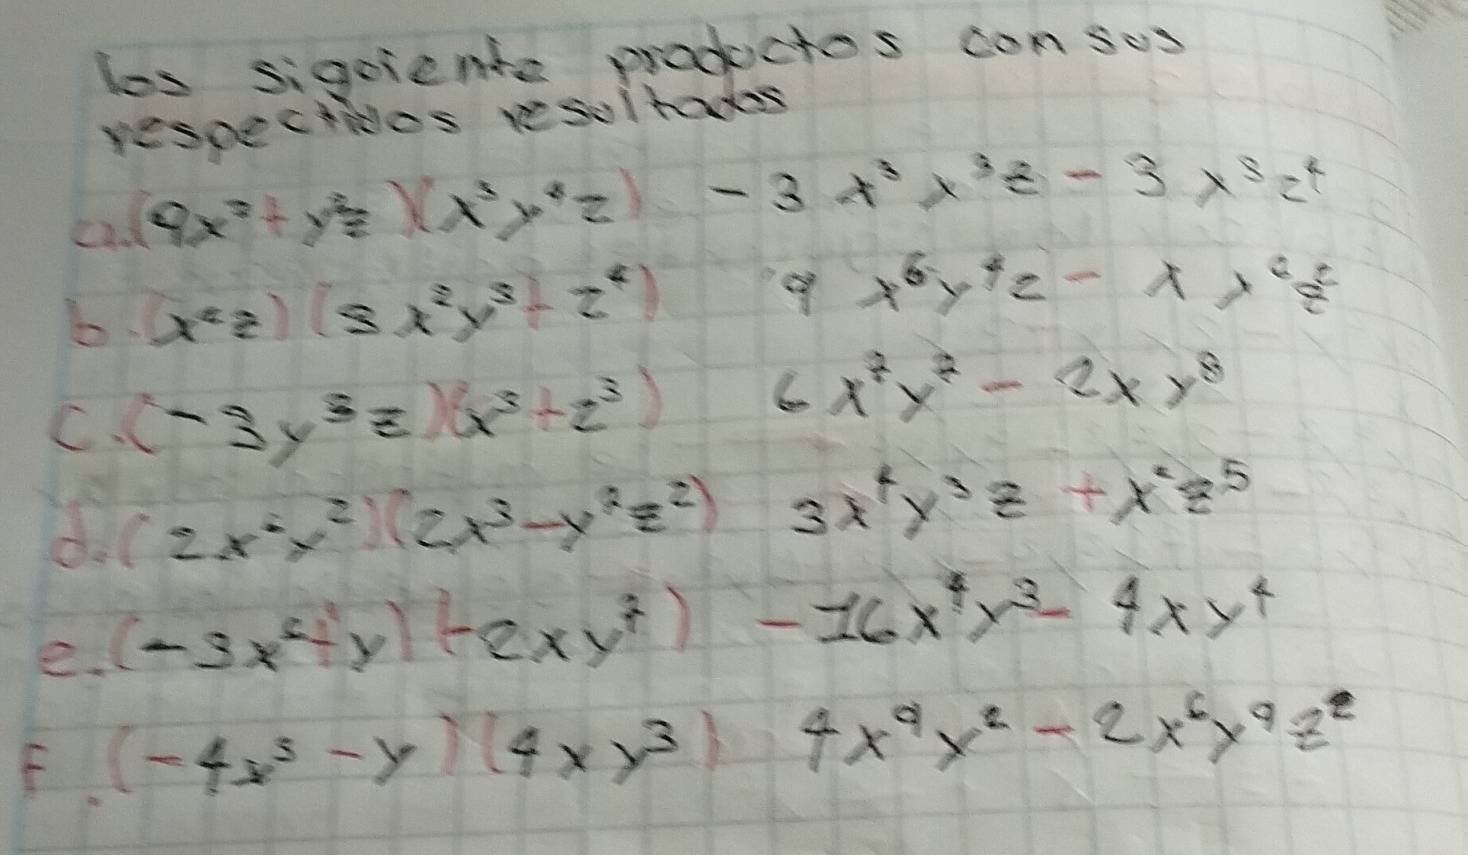 los sigoiente productos con sus
respectivos resultados
a. (9x³ + y²z)(x³y⁴z) -3x³x³z - 3x³z⁴
b. (x²z)(3x²y³ + z⁴) 9x⁶y⁴z - x y²z²
c. (-3y³z)(x³ + z³) 6x⁷y⁷ - 2xy⁸
d. (2x²y²)(2x³ - y²z²) 3x⁴y³z + x²z⁵
e. (-3x² + y)(-2xy⁷) -16x⁴y³ - 4xy⁴
F. (-4x³ - y)(4xy³) 4x⁹y² - 2x⁶y⁹z²